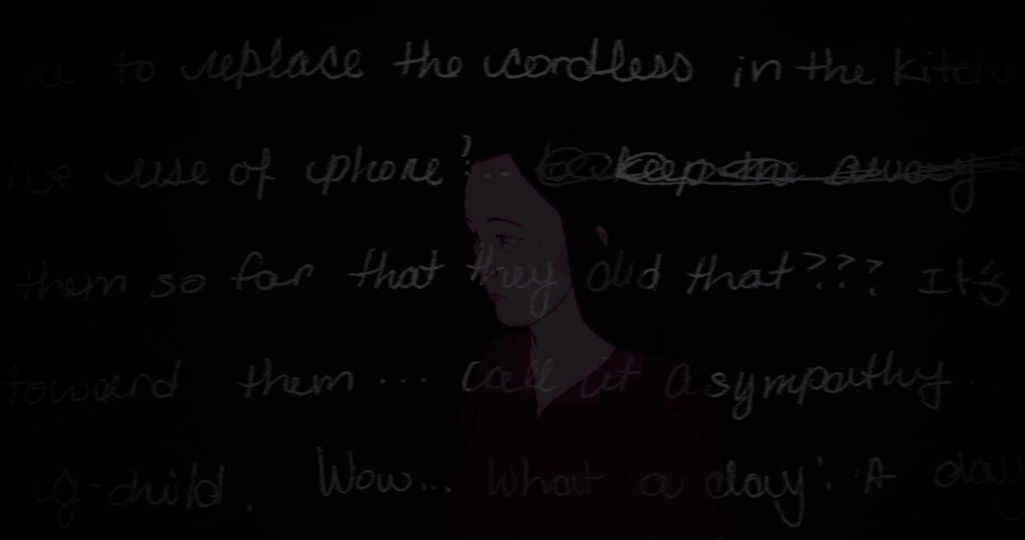 to replace the cordless in the kitche
ive use of phone! ... to keep me away
them so far that they did that??? It's
toward them ... call it a sympathy ...
g-child. Wow... What a day! A day